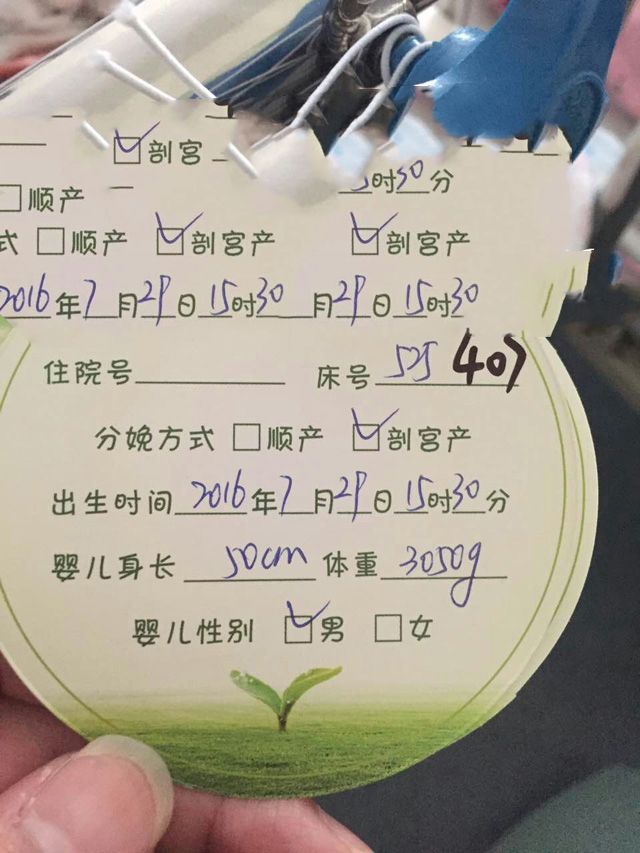 ☑剖宫
□顺产 时30分
式 □顺产 ☑剖宫产 ☑剖宫产
2016年7月29日15时30 月29日15时30
住院号 床号 525 (407)
分娩方式 □顺产 ☑剖宫产
出生时间 2016年7月29日15时30分
婴儿身长 50cm 体重 3050g
婴儿性别 ☑男 □女